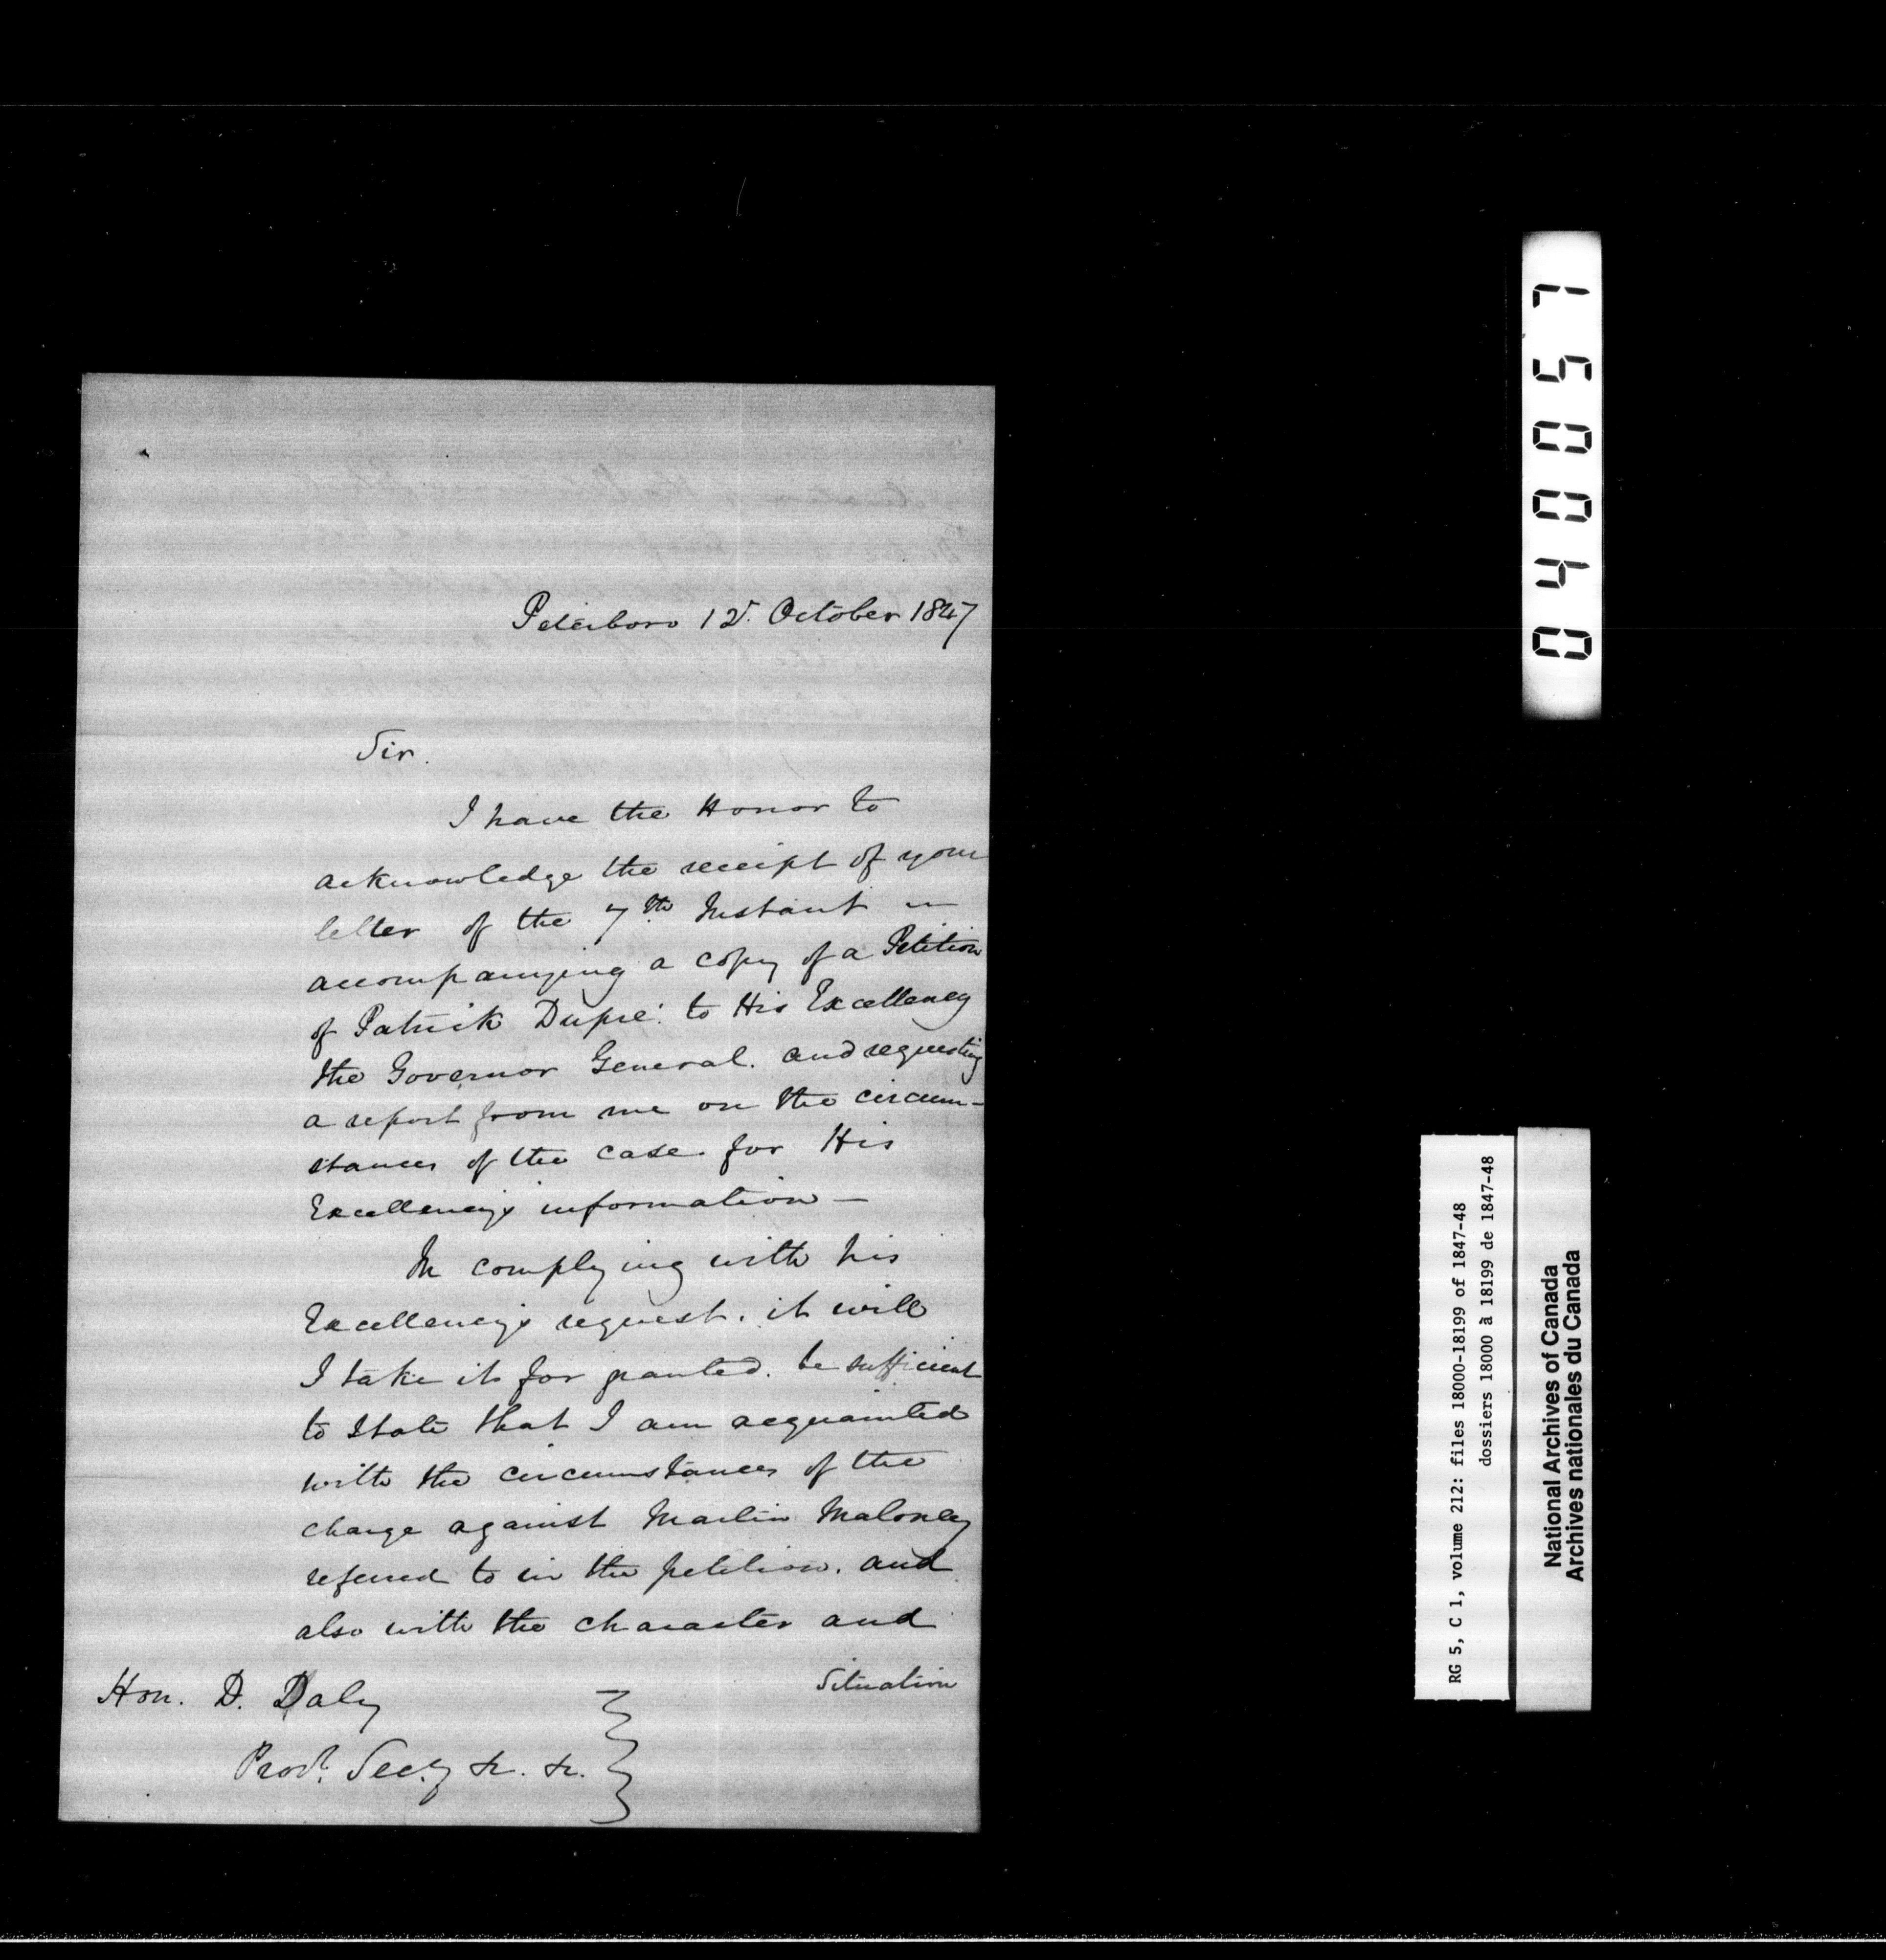 Peterboro 12. October 1847
Sir.
I have the Honor to
acknowledge the receipt of your
letter of the 7th Instant
accompanying a copy of a Petition
of Patrick Dupré. to His Excellency
the Governor General. and requesting
a report from me on the circum-
stances of the case for His
Excellency's information —
In complying with his
Excellency's request. it will
I take it for granted. be sufficient
to State that I am acquainted
with the circumstances of the
charge against Martin Maloney
referred to in the petition. and
also with the character and
Situation
Hon. D. Daly
Provl. Secy &c. &c.
040051
RG 5, C 1, volume 212: files 18000-18199 of 1847-48
dossiers 18000 à 18199 de 1847-48
National Archives of Canada
Archives nationales du Canada